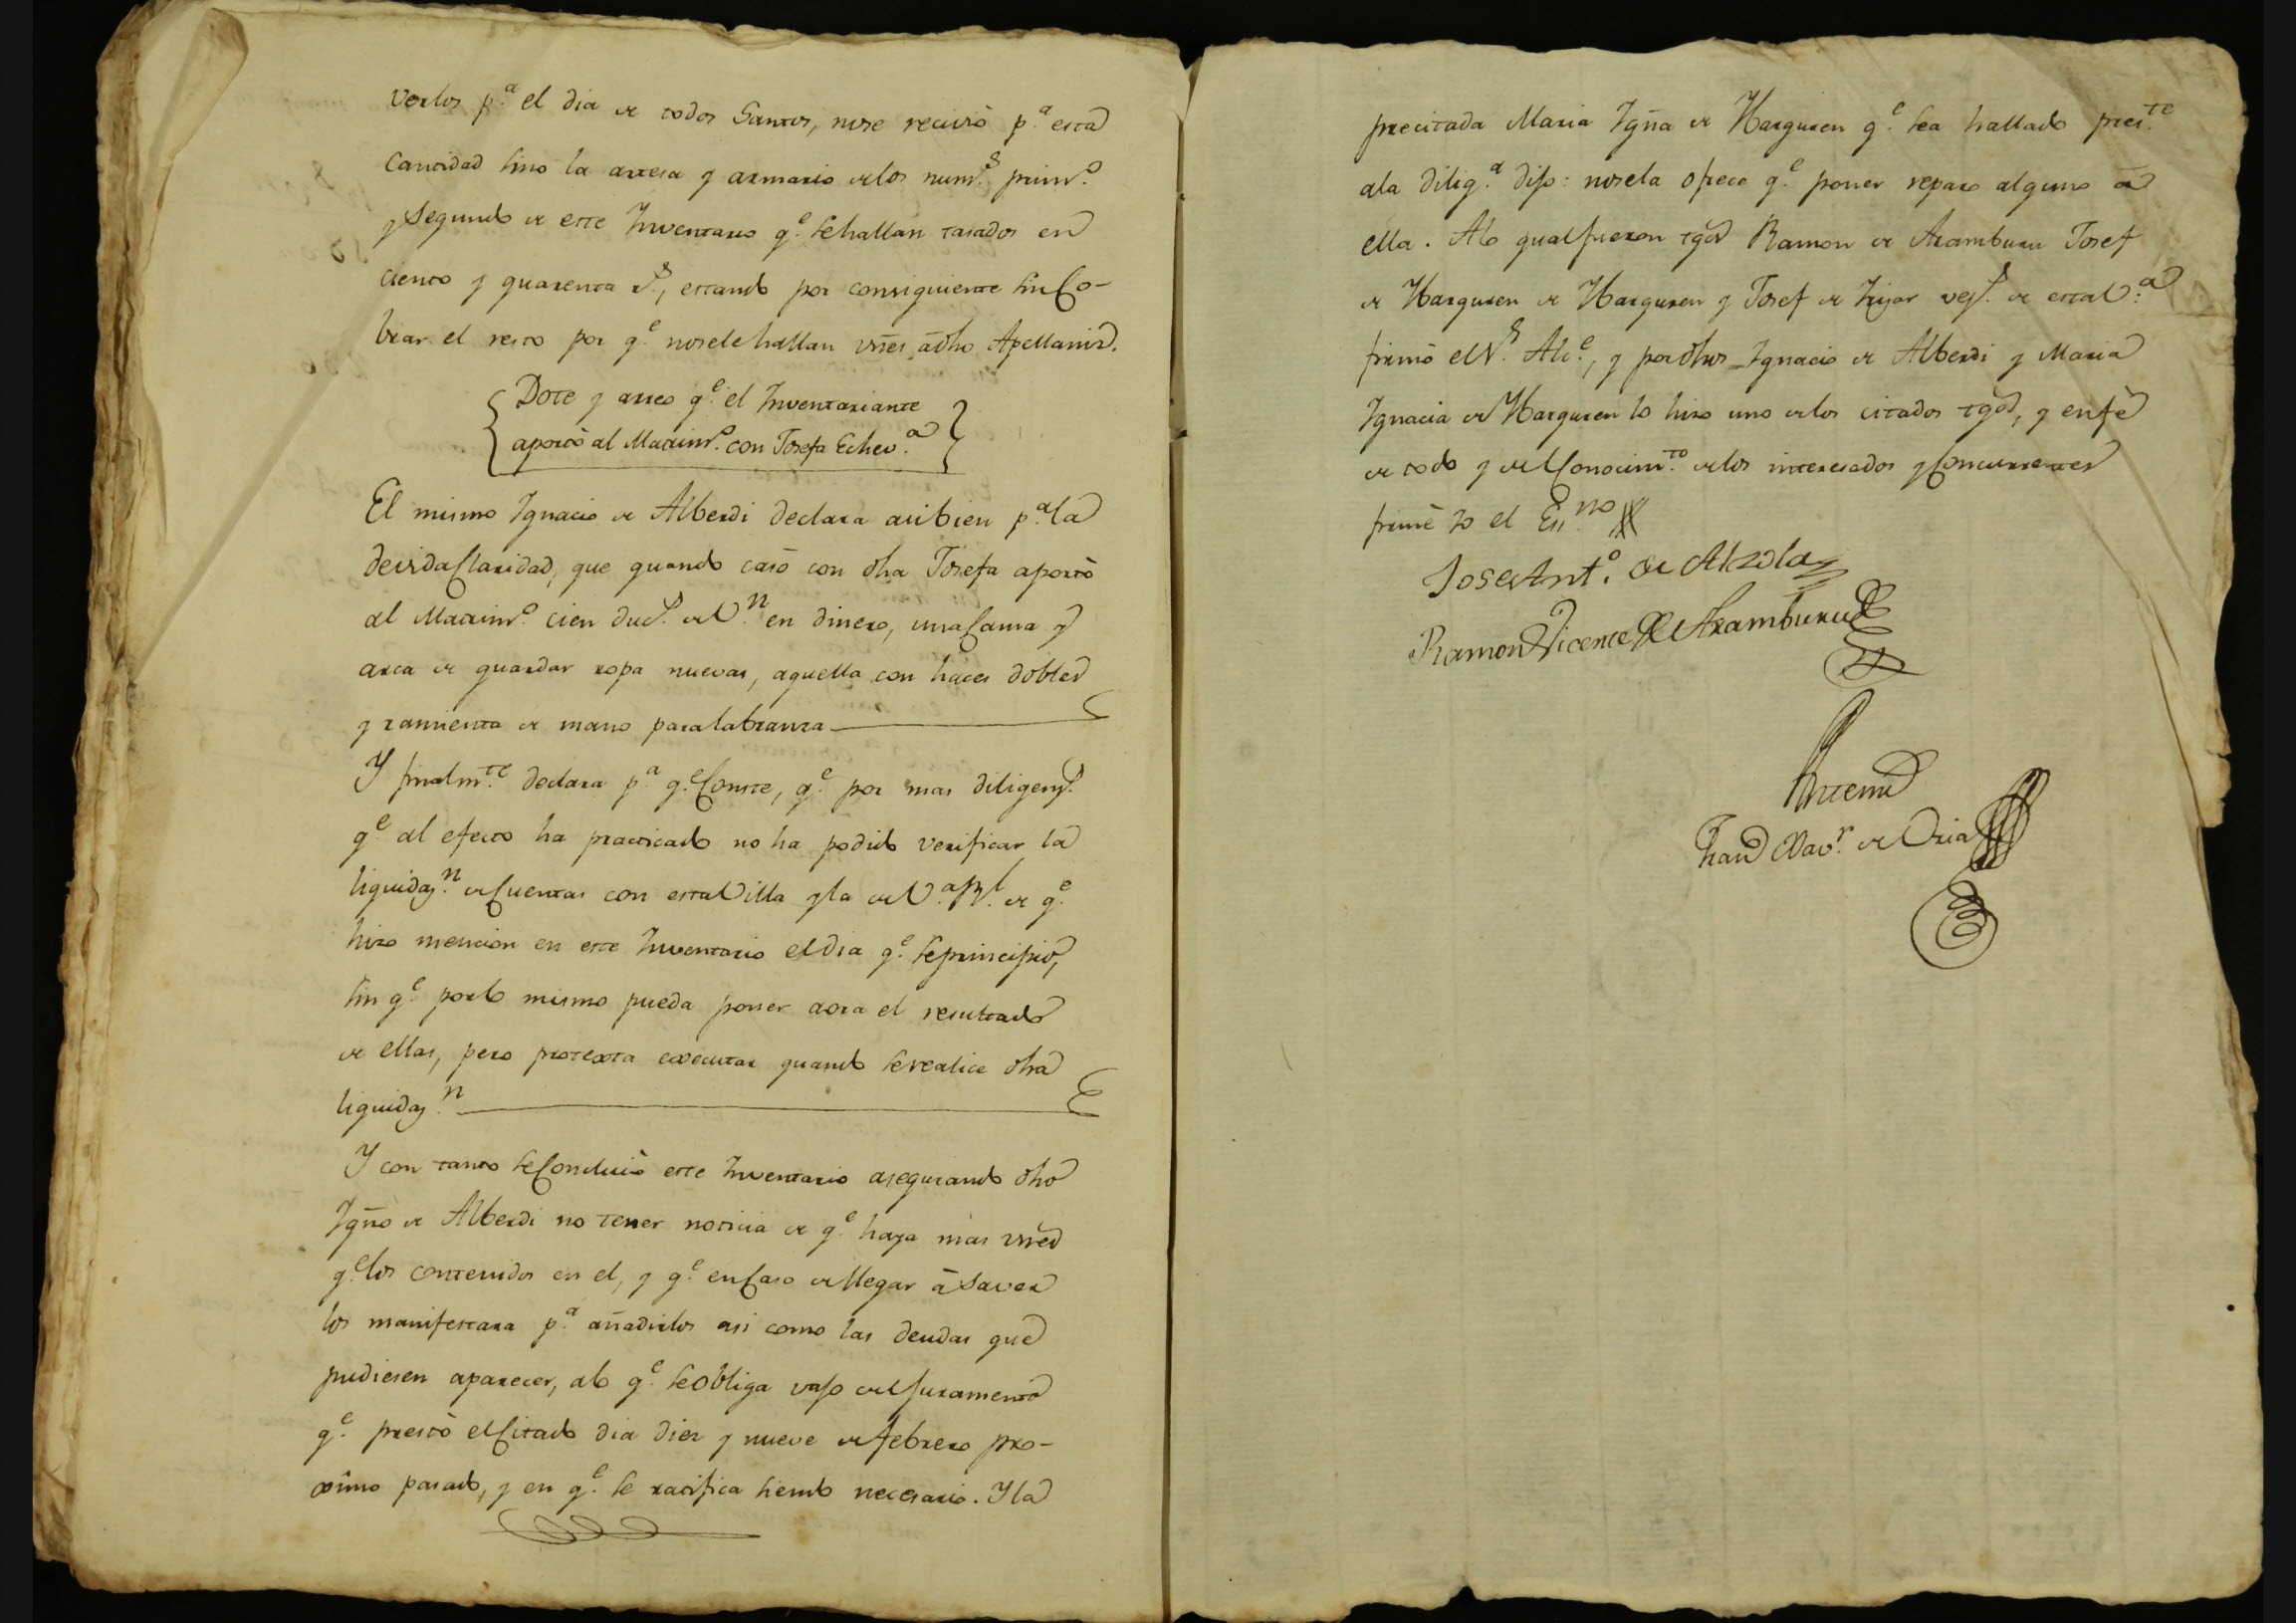 verlos p.ª el dia de todos Santos, nose reciviò p.ª esta
Cantidad sino la artesa y armario delos num.s prim.o
y Segundo de este Inventario q.e sehallan tasados en
ciento y quarenta r.s, estando por consiguiente sinCo-
brar el resto por q.e nosele hallan vnes adho Apellaniz.
Dote y arreo q.e el Inventariante
aportò al Matrim.o con Josefa Echev.a
El mismo Ignacio de Alberdi declara asibien p.ª la
devidaClaridad, que quando casò con dha Josefa aportò
al Matrim.o cien duc.s de V.n en dinero, unaCama y
arca de guardar ropa nuevas, aquella con haces dobles
y ramienta de mano paralabranza
Y finalm.te declara p.ª q.e Conste, q.e por mas diligenz.s
q.e al efecto ha practicado no ha podido verificar la
liquidaz.n deCuentas con estaVilla yla de V.a R.l de q.e
hizo mencion en este Inventario eldia q.e seprincipiò,
sin q.e porlo mismo pueda poner aora el resultado
de ellas, pero protexta executar quando serealice dha
liquidaz.n
Y con tanto seConcluiò este Inventario asegurando dho
Igño de Alberdi no tener noticia de q.e haya mas vnes
q.e los contenidos en el, y q.e enCaso dellegar à Saver
los manifestara p.ª añadirlos asi como las deudas que
pudiesen aparecer, alo q.e seobliga vajo delJuramento
q.e prestò elCitado dia diez y nueve defebrero pro-
ximo pasado, y en q.e se ratifica siendo necesario. Yla
precitada Maria Igña de Harguren q.e sea hallado pres.te
ala dilig.ª dijo: nosela ofrece q.e poner reparo alguno à
ella. Alo qualfueron tgos Ramon de Aramburu Josef
de Harguren de Harguren y Josef de Hijar vez.s de estaV.ª
firmò elS.r Alc.e, y pordhos Ignacio de Alberdi y Maria
Ignacia de Harguren lo hizo uno delos citados tgos, y enfè
de todo y delConocim.to delos interesados yConcurrentes
firmè Yo el Es.no
Jose Ant.o de Alzola
Ramon Vicente de Aramburu
Antemi
Fran.co Xav.r de Oria